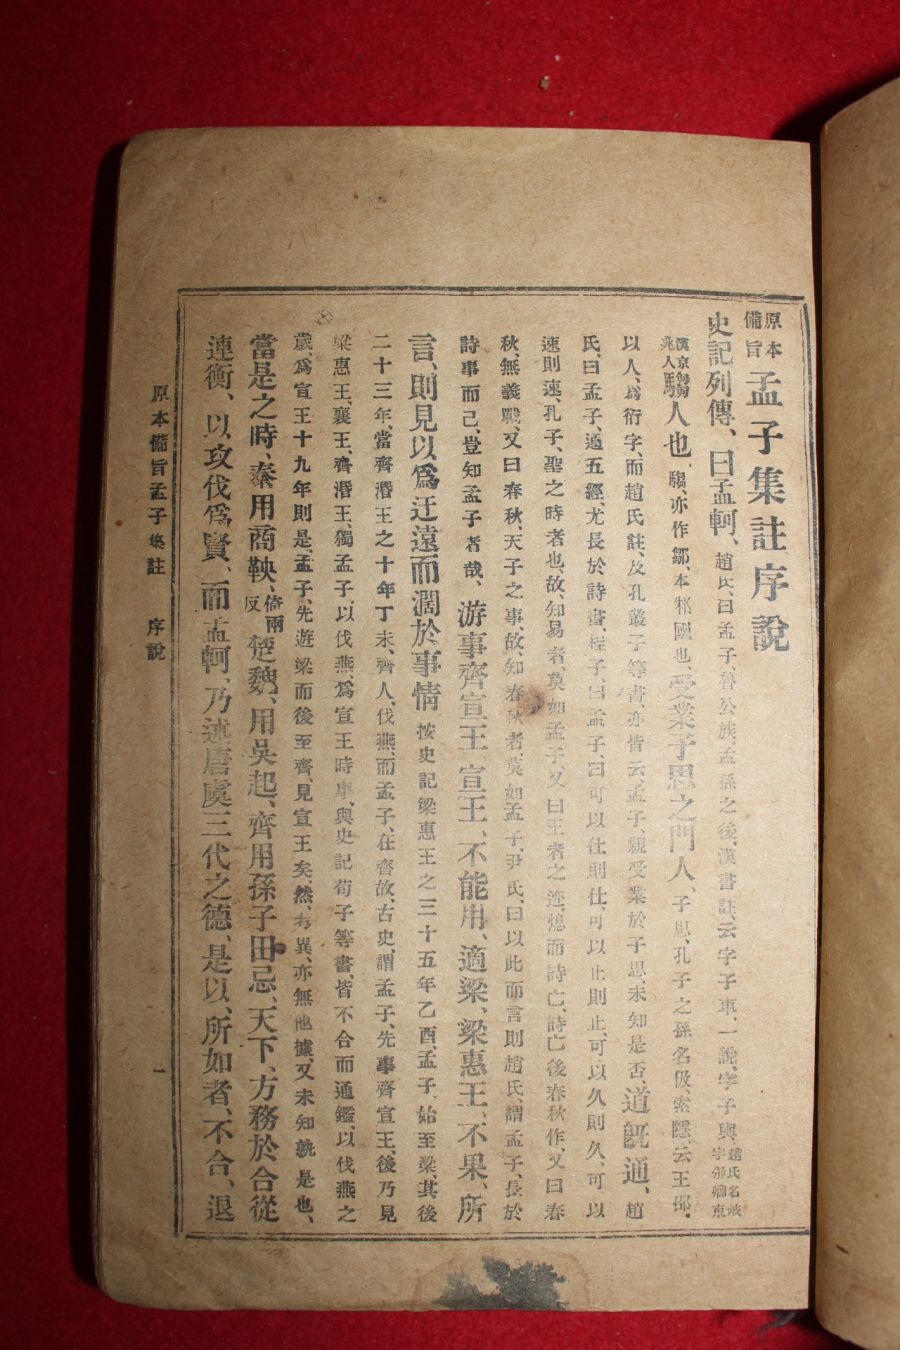 原本備旨 孟子集註序說
史記列傳、曰孟軻、趙氏、曰孟子、魯公族、孟孫之後、漢書註、云字子車、一說、字子輿、趙氏名岐字邠卿東
漢京兆人騶人也、騶、亦作鄒、本邾國也、受業子思之門人、子思、孔子之孫名伋索隱、云王邵、
以人、爲衍字、而趙氏註、及孔叢子等書、亦皆云、孟子、親受業於子思、未知是否道旣通、趙
氏、曰孟子、通五經、尤長於詩書、程子、曰孟子、曰可以仕則仕、可以止則止、可以久則久、可以
速則速、孔子、聖之時者也、故、知易者、莫如孟子、又曰王者之迹熄而詩亡、詩亡後春秋作、又曰春
秋、無義戰、又曰春秋、天子之事、故、知春秋者、莫如孟子、尹氏、曰以此而言則趙氏、謂孟子、長於
詩書而已、豈知孟子者哉、游事齊宣王、宣王、不能用、適梁、梁惠王、不果、所
言、則見以爲迂遠而濶於事情 按史記梁惠王之三十五年乙酉、孟子、始至梁、其後
二十三年、當齊湣王之十年丁未、齊人、伐燕、而孟子、在齊故、古史、謂孟子、先事齊宣王、後乃見
梁惠王、襄王、齊湣王、獨孟子、以伐燕、爲宣王時事、與史記荀子等書、皆不合而通鑑、以伐燕之
歲、爲宣王十九年則是、孟子、先遊梁而後至齊、見宣王矣、然、考異、亦無他據、又未知孰是也、
當是之時、秦用商鞅、倚兩反楚魏、用吳起、齊用孫子田忌、天下、方務於合從
連衡、以攻伐爲賢、而孟軻、乃述唐虞三代之德、是以、所如者、不合、退
原本備旨孟子集註 序說 一